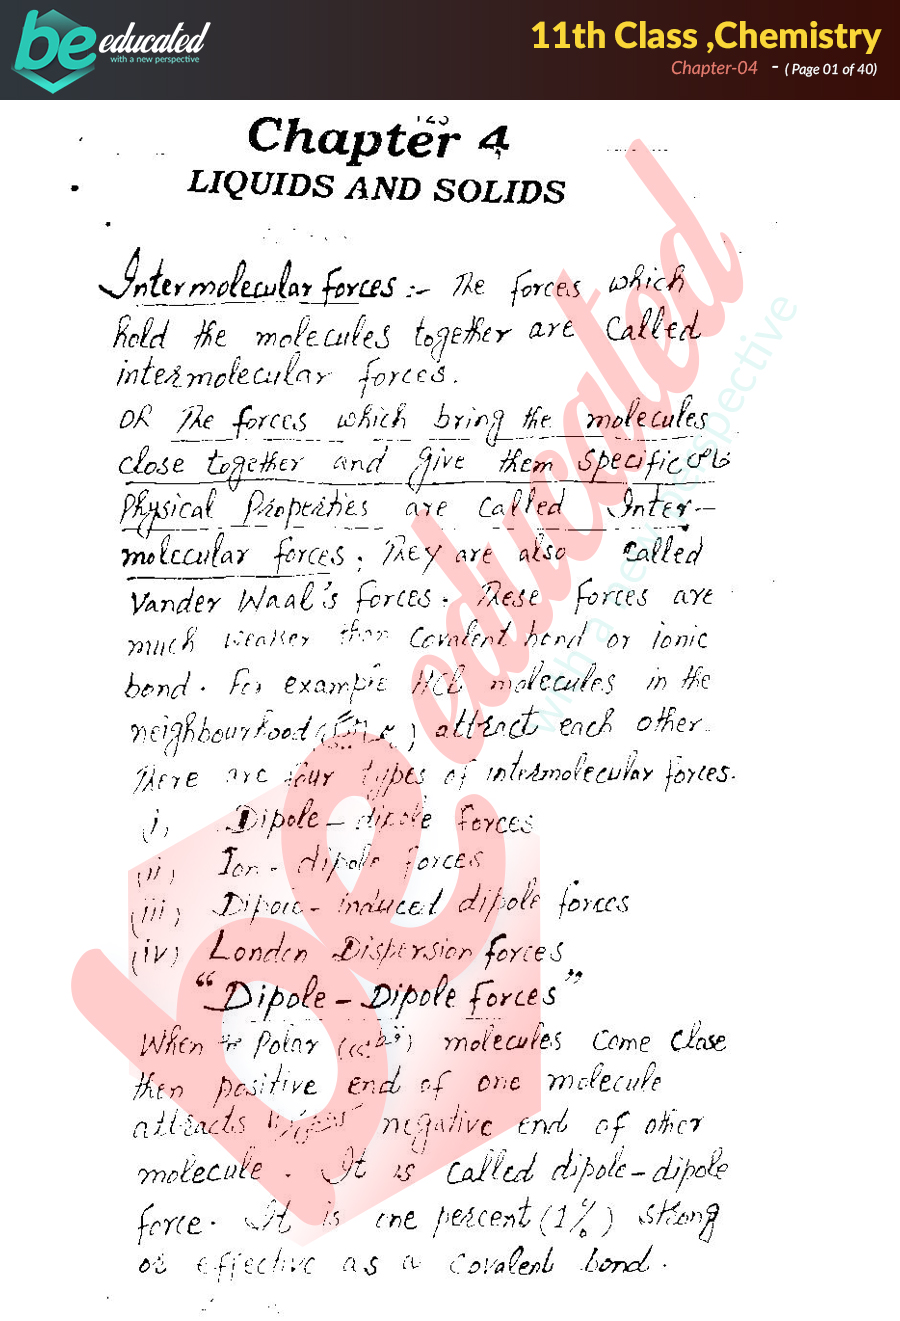 be educated
with a new perspective
11th Class ,Chemistry
Chapter-04 - ( Page 01 of 40)
Chapter 4
LIQUIDS AND SOLIDS
Intermolecular forces :- The forces which
hold the molecules together are called
intermolecular forces.
OR The forces which bring the molecules
close together and give them specific
Physical Properties are called Inter-
molecular forces. They are also called
Vander Waal's forces. These forces are
much weaker than covalent bond or ionic
bond. For example HCl molecules in the
neighbourhood ( ) attract each other.
There are four types of intermolecular forces.
(i) Dipole - dipole forces
(ii) Ion - dipole forces
(iii) Dipole - induced dipole forces
(iv) London Dispersion forces
"Dipole - Dipole forces"
When the Polar ( ) molecules come close
then positive end of one molecule
attracts negative end of other
molecule. It is called dipole-dipole
force. It is one percent (1%) strong
or effective as a covalent bond.
be educated
with a new perspective